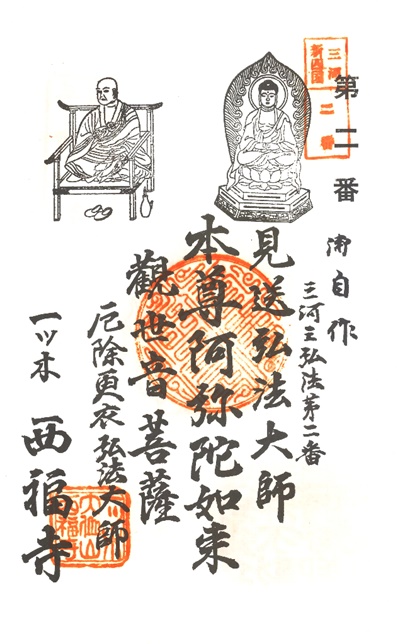 三河
新四国
二番
第二番
御自作
三河三弘法第二番
見送弘法大師
本尊阿弥陀如来
觀世音菩薩
厄除更衣弘法大師
一ツ木
西福寺